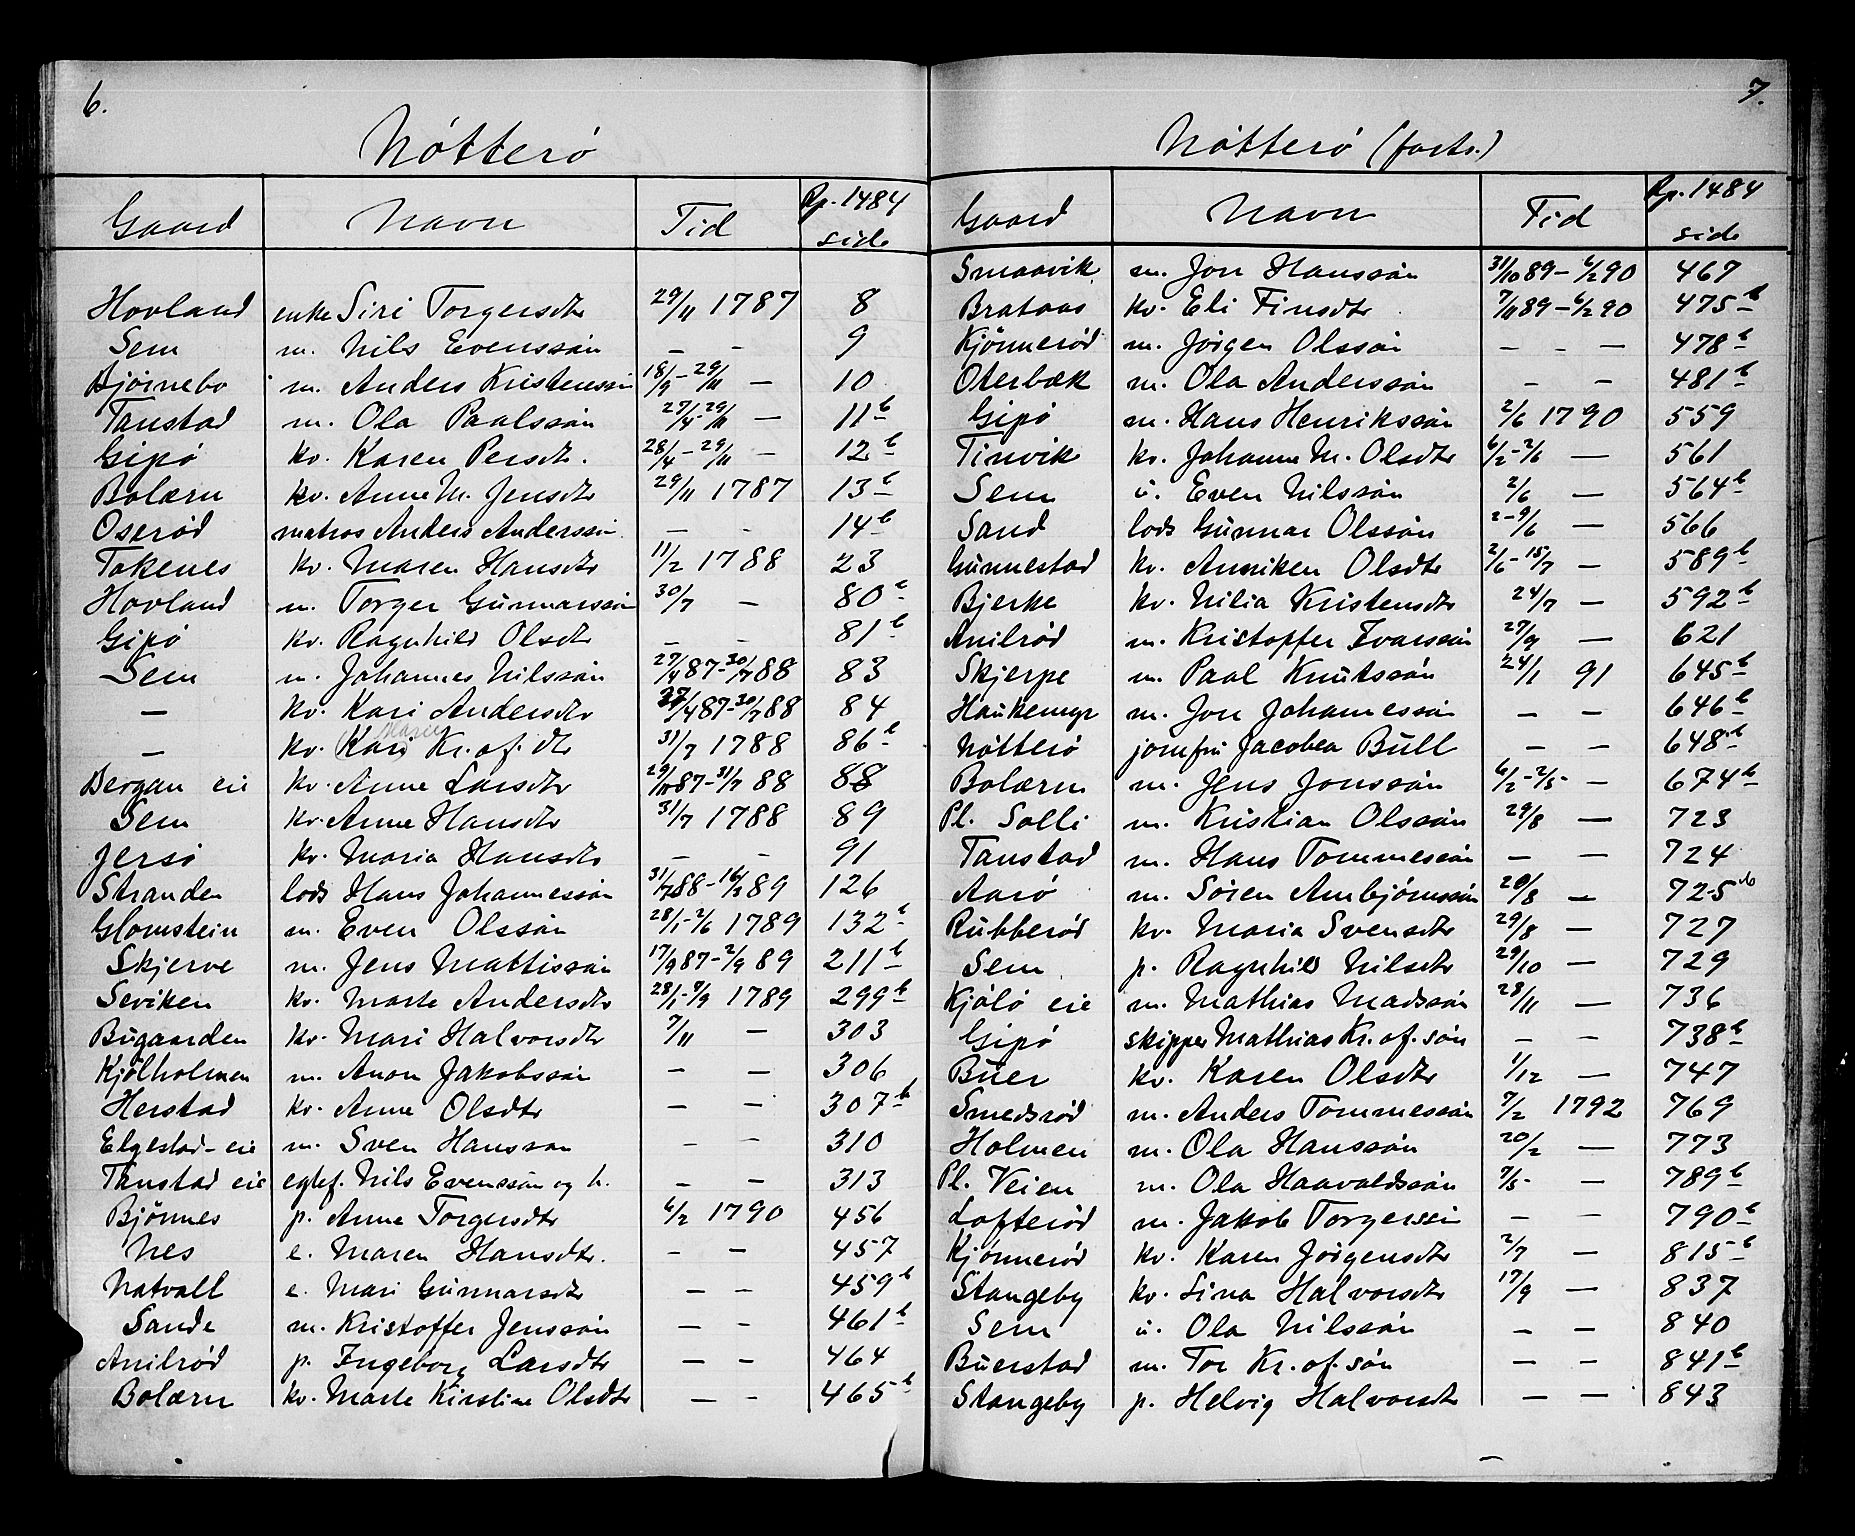 6.
Nötterö
Gaard Navn Tid Rp. 1484 side
Hovland enke Siri Torgersdtr 29/11 1787 8
Sem m. Nils Evenssön — - 9
Bjørnebo m. Anders Kristenssön 18/9-29/11 — 10
Tanstad m. Ola Paalssön 27/4-29/11 — 11b
Gipö kv. Karen Persdtr. 28/4-29/11 — 12b
Bolærn kv. Anne M. Jensdtr 29/11 1787 13b
Oserød matros Anders Anderssön — - 14b
Tokenes kv. Maren Hansdtr 11/2 1788 23
Hovland m. Torger Gunnarssön 30/7 — 80b
Gipö kv. Ragnhild Olsdtr — - 81b
Sem m. Johannes Nilssön 27/4 87-30/7 88 83
— kv. Kari Andersdtr 27/4 87-30/7 88 84
— kv. (Kari) Maria Kr.of.dtr 31/7 1788 86b
Bergan eie kv. Anne Larsdtr 29/11 87-31/7 88 88
Sem kv. Anne Hansdtr 31/7 1788 89
Jersö kv. Maria Hansdtr — - 91
Stranden lods Hans Johannessön 31/7 88-16/2 89 126
Glomstein m. Even Olssön 28/1-2/6 1789 132b
Skjerve m. Jens Mattissön 17/9 87-2/9 89 211b
Seviken kv. Marte Andersdtr 28/1-9/9 1789 299b
Bugaarden kv. Mari Halvorsdtr 7/11 — 303
Kjölholmen m. Anon Jakobssön — — 306
Herstad kv. Anne Olsdtr — — 307b
Elgestad-eie m. Sven Hanssøn — — 310
Tanstad eie egtef. Nils Evenssön og h. — — 313
Bjönnes p. Anne Torgersdtr 6/2 1790 456
Nes e. Maren Hansdtr. — — 457
Natvall e. Mari Gunnarsdtr — — 459b
Sande m. Kristoffer Jenssön — — 461b
Anilrød p. Ingeborg Larsdtr — — 464
Bolærn kv. Marte Kirstine Olsdtr — - 465b
7.
Nötterö (forts.)
Gaard Navn Tid Rp. 1484 side
Smaavik m. Jon Hanssön 31/10 89-6/2 90 467
Brataas kv. Eli Finsdtr 7/11 89-6/2 90 475b
Kjönnerød m. Jörgen Olssön — — — 478b
Oterbæk m. Ola Anderssön — — 481b
Gipö m. Hans Henrikssön 2/6 1790 559
Tinvik kv. Johanne M. Olsdtr 6/2-2/6 — 561
Sem u. Even Nilssön 2/6 — 564b
Sand lods Gunnar Olssön 2-9/6 — 566
Gunnestad kv. Anniken Olsdtr 2/6-15/7 — 589b
Bjerke kv. Nilia Kristensdtr 24/7 — 592b
Anilrød m. Kristoffer Ivarssön 27/9 — 621
Skjerpe m. Paal Knutssön 24/1 91 645b
Haukemyr m. Jon Johannessön — — 646b
Nötterö jomfru Jacobea Bull — — 648b
Bolærn m. Jens Jonssön 6/2-2/5 — 674b
Pl. Solli m. Kristian Olssön 29/8 — 723
Tanstad m. Hans Tommessön — — 724
Aarö m. Sören Arnbjörnssön 20/8 — 725b
Rubberød kv. Maria Svensdtr 29/8 — 727
Sem p. Ragnhild Nilsdtr 29/10 — 729
Kjölö eie m. Mathias Madssön 28/11 — 736
Gipö skipper Mathias Kr.of.sön — — 738b
Buer kv. Karen Olsdtr 1/12 — 747
Smedsrød m. Anders Tommessön 7/2 1792 769
Holmen m. Ola Hanssön 20/2 — 773
Pl. Veien m. Ola Haavaldssön 7/5 — 789b
Lofterød m. Jakob Torgerssön — — 790b
Kjönnerød kv. Karen Jörgensdtr 2/7 — 815b
Stangeby kv. Lina Halvorsdtr 17/9 — 837
Sem u. Ola Nilssön — — 840
Buerstad m. Tor Kr.of.sön — — 841b
Stangeby p. Helvig Halvorsdtr — — 843